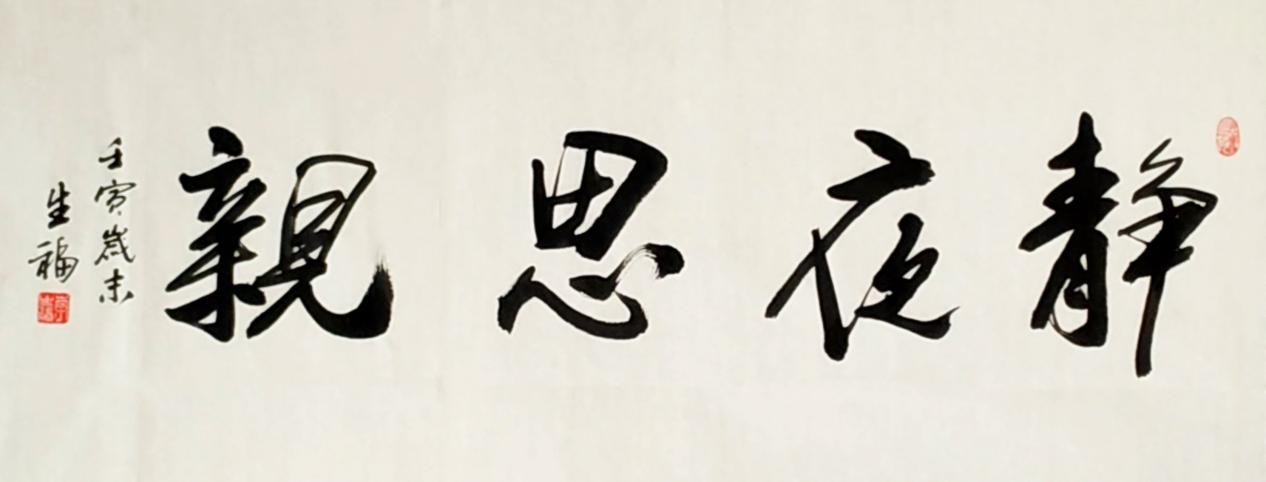 静夜思親
壬寅歲末
生福